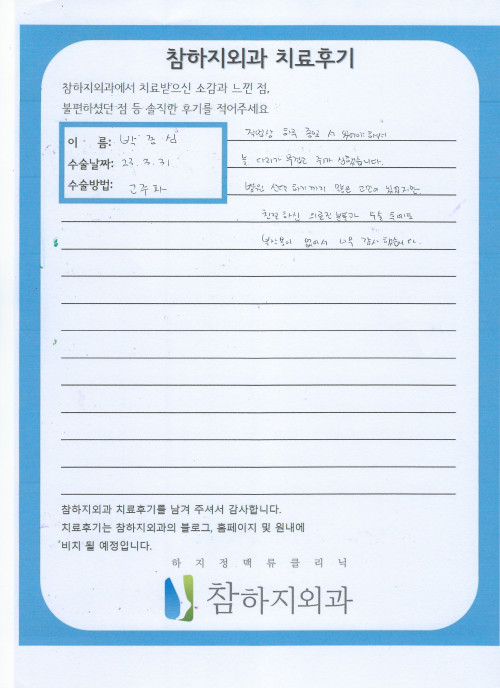 참하지외과 치료후기
참하지외과에서 치료받으신 소감과 느낀 점,
불편하셨던 점 등 솔직한 후기를 적어주세요
이 름: 박종심
수술날짜: 23. 3. 31
수술방법: 고주파
직업상 하루 종일 서 있어야 해서
늘 다리가 무겁고 쥐가 심했습니다.
병원 선택 하기까지 많은 고민이 있었지만
친절하신 의료진분들과 수술 후에도
부작용이 없어서 너무 감사했습니다.
참하지외과 치료후기를 남겨 주셔서 감사합니다.
치료후기는 참하지외과의 블로그, 홈페이지 및 원내에
비치 될 예정입니다.
하지정맥류클리닉
참하지외과